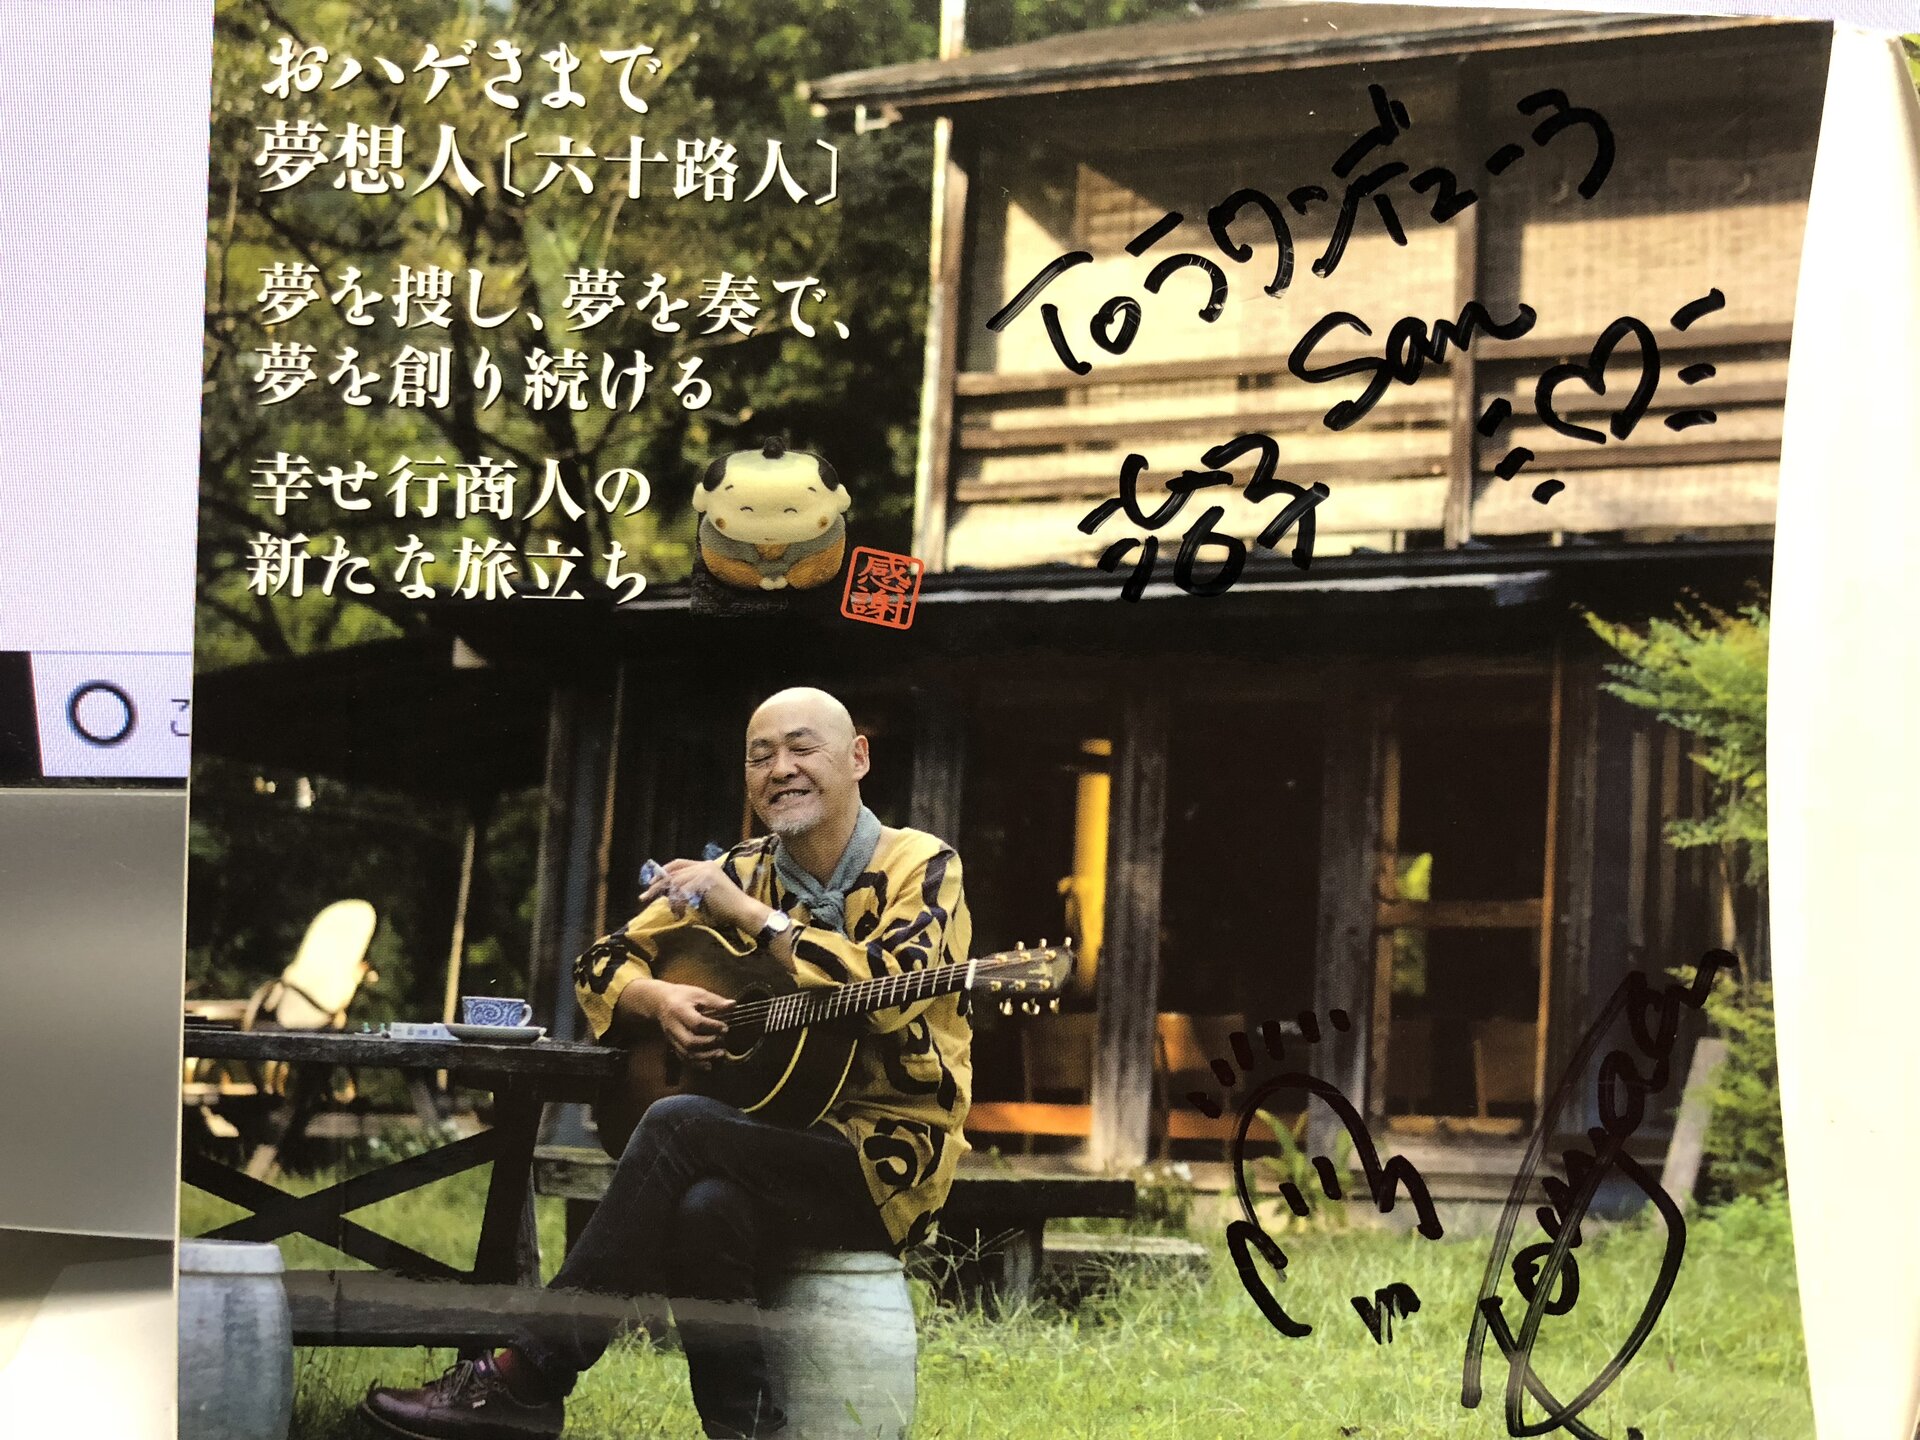 おハゲさまで
夢想人〔六十路人〕
夢を捜し、夢を奏で、
夢を創り続ける
幸せ行商人の
新たな旅立ち
感謝
To
San